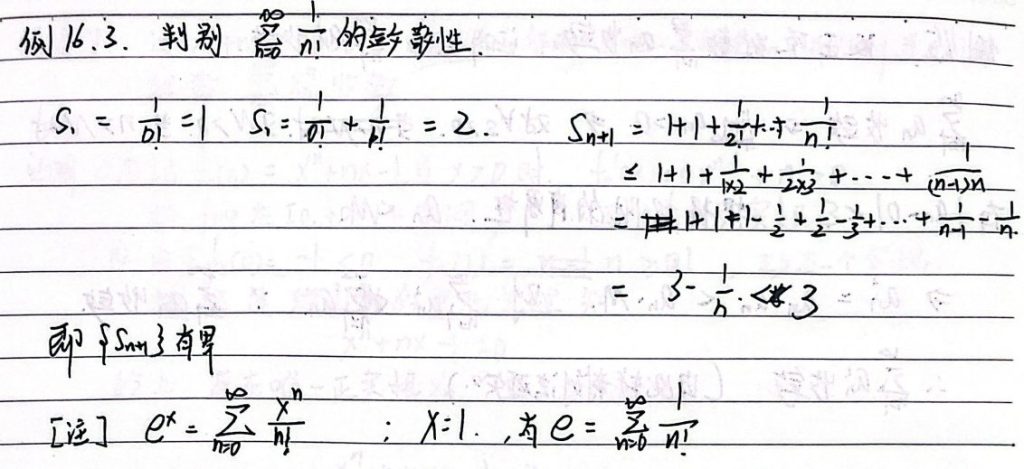 例16.3. 判别 $\sum_{n=0}^{\infty} \frac{1}{n!}$ 的敛散性.
$S_1 = \frac{1}{0!} = 1$ $S_1 = \frac{1}{0!} + \frac{1}{1!} = 2.$ $S_{n+1} = 1+1+\frac{1}{2!}+\cdots+\frac{1}{n!}$
$\leq 1+1+\frac{1}{1\times2}+\frac{1}{2\times3}+\cdots+\frac{1}{(n-1)n}$
$= 1+1+1-\frac{1}{2}+\frac{1}{2}-\frac{1}{3}+\cdots+\frac{1}{n-1}-\frac{1}{n}.$
$= 3-\frac{1}{n}. < 3$
即 $\{S_{n+1}\}$ 有界
[注] $e^x = \sum_{n=0}^{\infty} \frac{x^n}{n!}$ ; $x=1.$ , 有 $e = \sum_{n=0}^{\infty} \frac{1}{n!}$